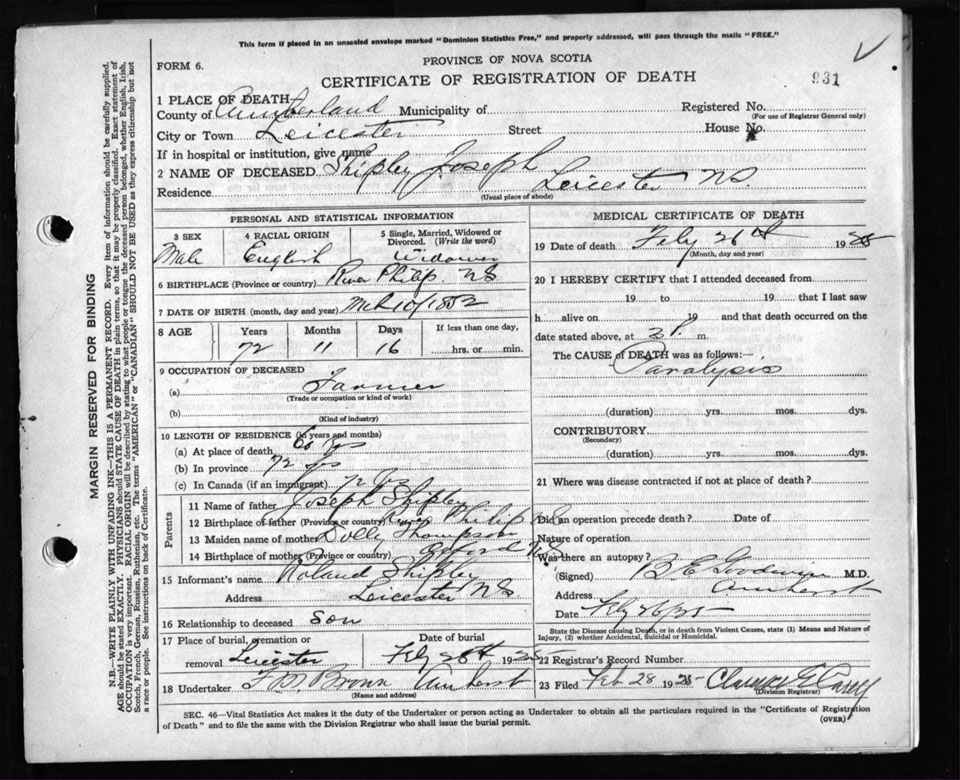 This form if placed in an unsealed envelope marked "Dominion Statistics Free," and properly addressed, will pass through the mails "FREE."
FORM 6.
PROVINCE OF NOVA SCOTIA
CERTIFICATE OF REGISTRATION OF DEATH
931
1 PLACE OF DEATH
County of Cumberland Municipality of
Registered No.
(For use of Registrar General only)
City or Town Leicester Street House No.
If in hospital or institution, give name
2 NAME OF DECEASED Shipley Joseph
Residence Leicester NS.
(Usual place of abode)
PERSONAL AND STATISTICAL INFORMATION
3 SEX
Male
4 RACIAL ORIGIN
English
5 Single, Married, Widowed or
Divorced. (Write the word)
Widower
6 BIRTHPLACE (Province or country) River Philip NS
7 DATE OF BIRTH (month, day and year) Mch 10/1852
8 AGE Years Months Days If less than one day,
72 11 16 hrs. or min.
9 OCCUPATION OF DECEASED
(a) Farmer
(Trade or occupation or kind of work)
(b)
(Kind of industry)
10 LENGTH OF RESIDENCE (in years and months)
(a) At place of death yrs
(b) In province 72 yrs
(c) In Canada (if an immigrant) 72
Parents
11 Name of father Joseph Shipley
12 Birthplace of father (Province or country) River Philip
13 Maiden name of mother Dolly Thompson
14 Birthplace of mother (Province or country) Oxford NS
15 Informant's name Roland Shipley
Address Leicester NS
16 Relationship to deceased Son
17 Place of burial, cremation or
removal Leicester
Date of burial
Feby 28th 1925
18 Undertaker Brown Amherst
(Name and address)
MEDICAL CERTIFICATE OF DEATH
19 Date of death Feby 26th 1925
(Month, day and year)
20 I HEREBY CERTIFY that I attended deceased from
19 to 19 that I last saw
h alive on 19 and that death occurred on the
date stated above, at 3 P. m.
The CAUSE of DEATH was as follows:—
Paralysis
(duration) yrs. mos. dys.
CONTRIBUTORY
(Secondary)
(duration) yrs. mos. dys.
21 Where was disease contracted if not at place of death?
Did an operation precede death? Date of
Nature of operation
Was there an autopsy?
(Signed) B E Goodwin M.D.
Address Amherst
Date Feby 26/25
State the Disease causing Death, or in death from Violent Causes, state (1) Means and Nature of
Injury, (2) whether Accidental, Suicidal or Homicidal.
22 Registrar's Record Number
23 Filed Feb 28 1925 Clarence E
(Division Registrar)
SEC. 46—Vital Statistics Act makes it the duty of the Undertaker or person acting as Undertaker to obtain all the particulars required in the "Certificate of Registration
of Death" and to file the same with the Division Registrar who shall issue the burial permit.
(OVER)
MARGIN RESERVED FOR BINDING
N.B.—WRITE PLAINLY WITH UNFADING INK—THIS IS A PERMANENT RECORD. Every item of information should be carefully supplied.
AGE should be stated EXACTLY. PHYSICIANS should STATE CAUSE OF DEATH in plain terms, so that it may be properly classified. Exact statement of
OCCUPATION is very important. RACIAL ORIGIN will be described by stating to what people or tongue the deceased person belonged, whether English, Irish,
Scotch, French, German, Russian, Ruthenian, etc. The terms "AMERICAN" or "CANADIAN" SHOULD NOT BE USED as they express citizenship but not
a race or people. See instructions on back of Certificate.